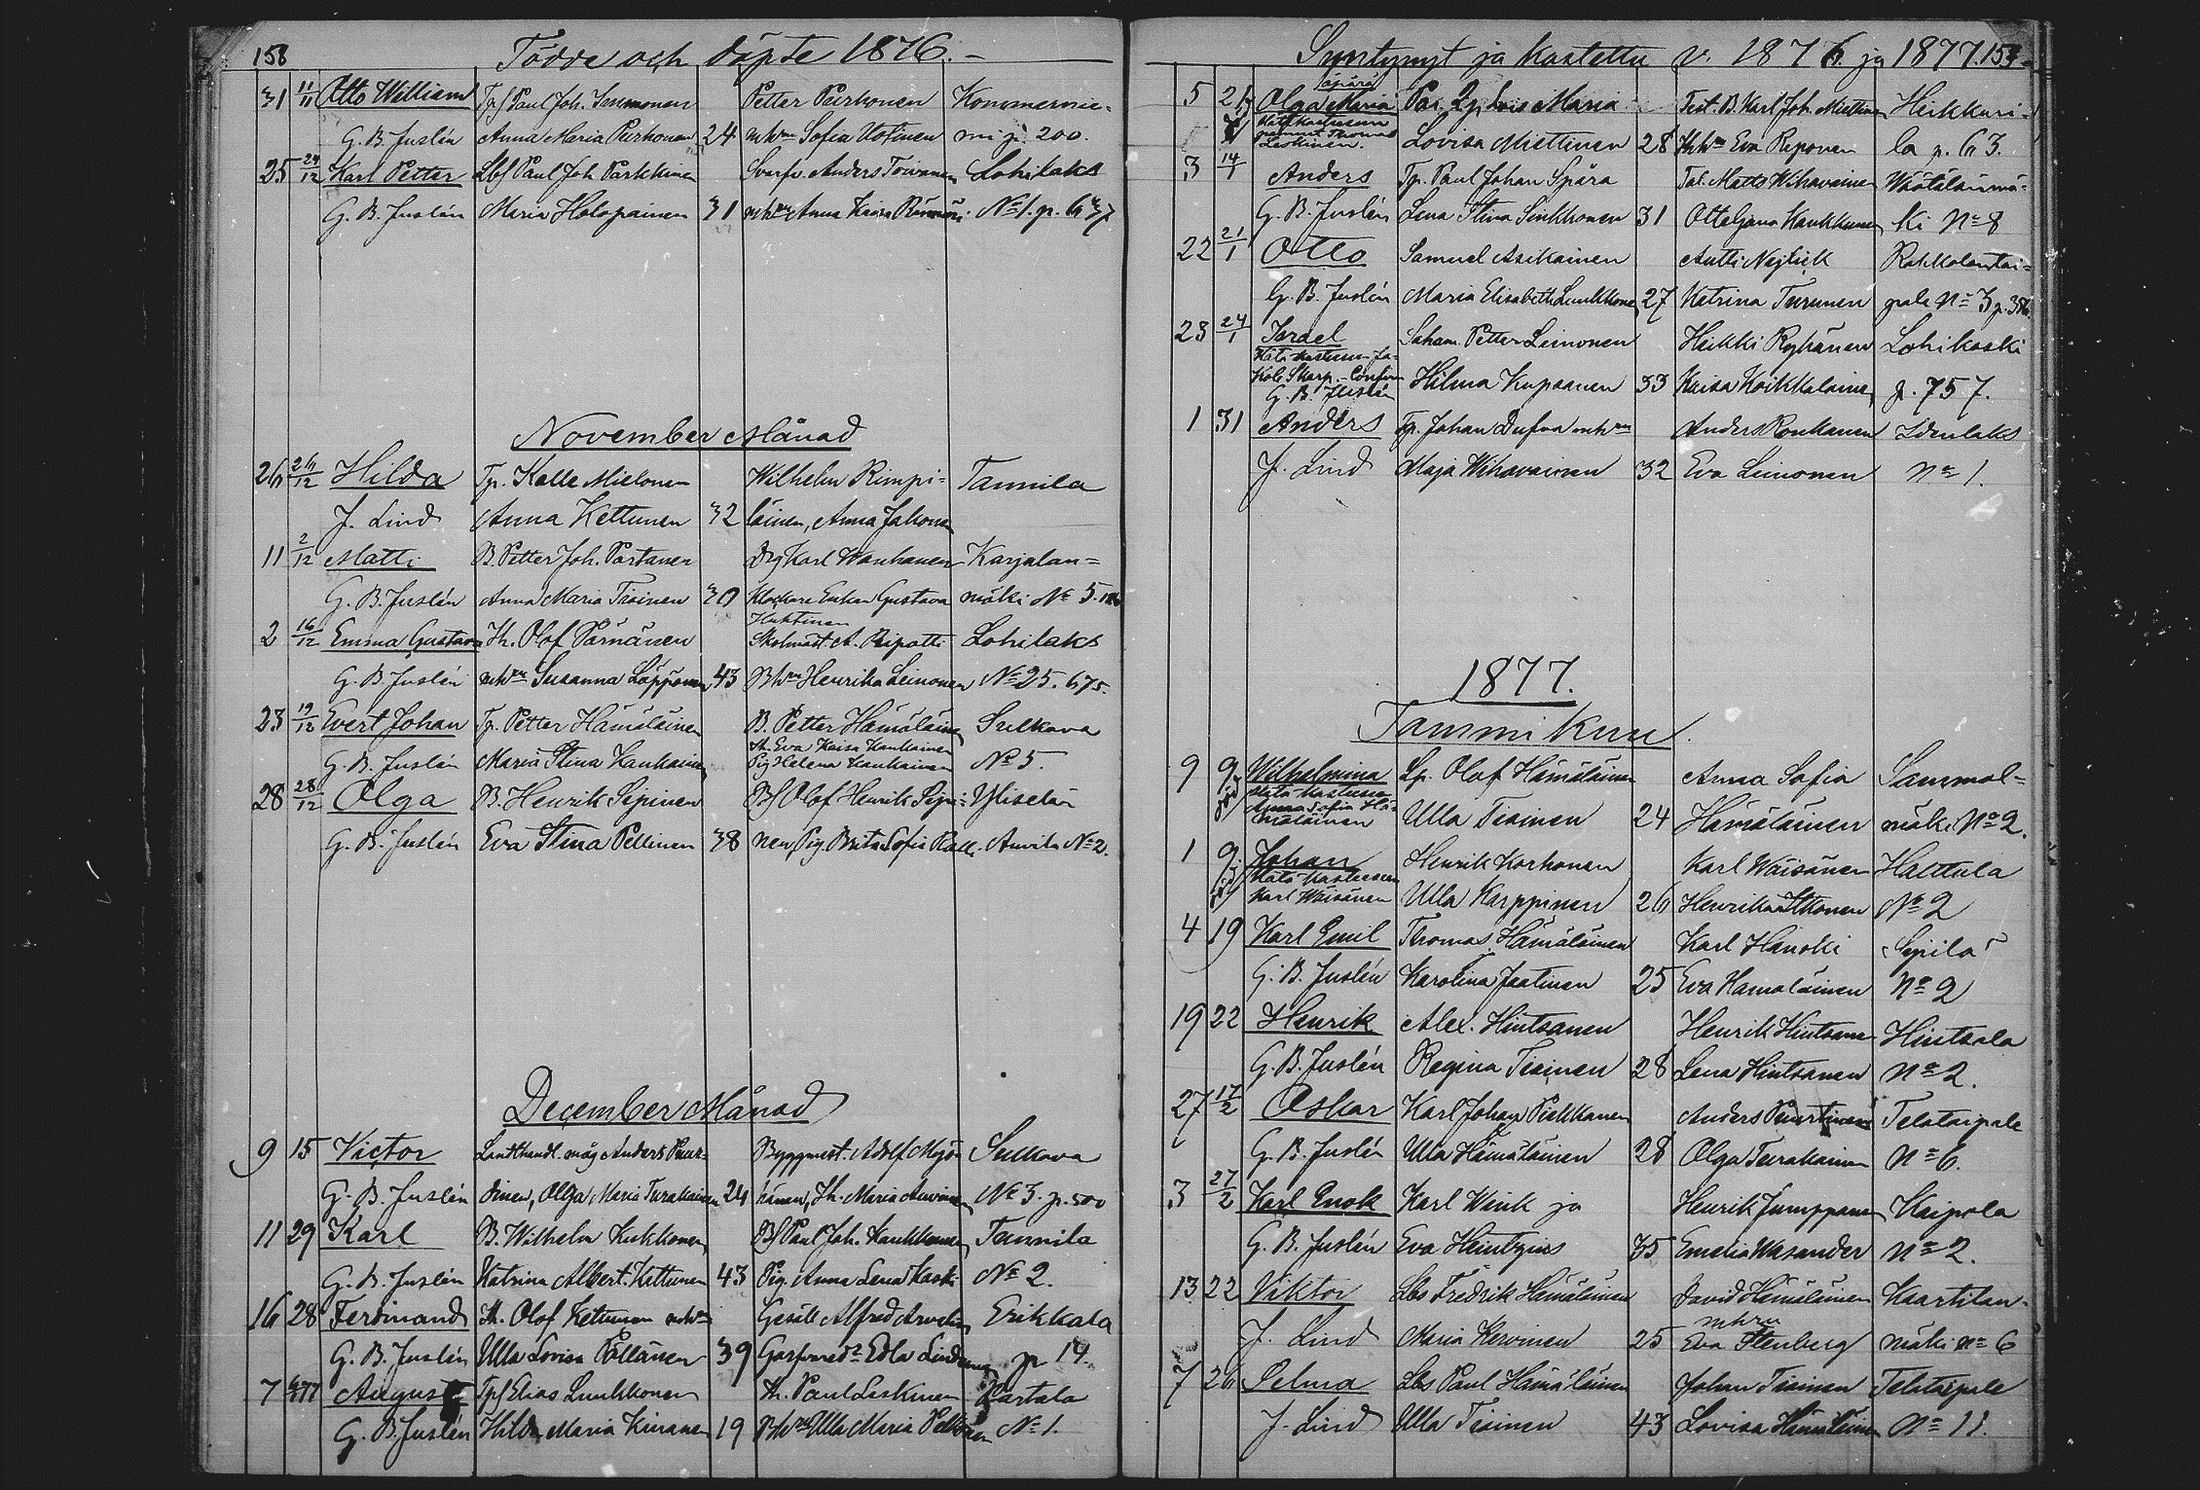 158 Födde och döpte 1876.-
31 11/11 Otto William Tpf Paul Joh. Immonen Petter Purhonen Kommernie-
G. B. Juslén Anna Maria Purhonen 24 mhru Sofia mi p. 200.
25 24/12 Karl Petter Lbf Paul Joh Parkkinen Anders Toivanen Lohilaks
G. B. Juslén Maria Holopainen 31 mhru Anna Kaisa No 1. p. 647
November Månad
26 26/12 Hilda Tp. Kalle Mielonen Wilhelm Rimpi= Tannila
J. Lind Anna Kettunen 32 läinen, Anna Jakonen
11 2/12 Matti B. Petter Joh. Partanen Drg Karl Wanhanen Karjalan=
G. B. Juslén Anna Maria Tiainen 30 Klockare Enkan Gustava mäki No 5.
Huttunen
2 16/12 Emma Gustava Th. Olof Pärnänen Skolmäst. A. Ripatti Lohilaks
G. B. Juslén mhru Susanna Läppänen 43 Bhru Henrika Leinonen No 25. 675.
23 19/12 Evert Johan Tp. Petter Hämäläinen B. Petter Hämäläinen Sulkava
H. Eva Kaisa Kaukainen
G. B. Juslén Maria Stina Kaukainen Pig Helena Kaukainen No 5.
28 28/12 Olga B. Henrik Sipinen Bf Olof Henrik Sipi= Yliselä
G. B. Juslén Eva Stina Pellinen 38 nen, Pig. Brita Sofia Auvila No 2.
December Månad
9 15 Victor Landthandl. måg Anders Puur= Byggmest. Adolf Sulkava
G. B. Juslén tinen, Olga Maria Turakainen 24 hänen, Th. Maria Auvinen No 3. p. 500
11 29 Karl B. Wilhelm Kukkonen Bf Paul Joh. Kaukkonen Tannila
G. B. Juslén Katrina Albert. Kettunen 43 Pig. Anna Lena Kaski No 2.
16 28 Ferdinand Th. Olof Kettunen mhru Gesäll Alfred Erikkala
G. B. Juslén Ulla Lovisa Pöllänen 39 Edla p 14.
7 77 August Tpf Elias Luukkonen Th. Paul Leskinen Partala
G. B. Juslén Hilda Maria Kiiranen 19 Bhru Ulla Maria No 1.
Syntynyt ja kastettu v. 1876. ja 1877. 159
äpärä
5 21 Olga Maria Pig. Lovis Maria Test. B. Karl Joh. Miettinen Heikkuri=
Hätä kastunun
Thomas
Leskinen. Lovisa Miettinen 28 Hhru Eva Reponen la p. 63.
3 14/1 Anders Tp. Paul Johan Spåra Tal. Matts Wihavainen Wäätälänmä-
G. B. Juslén Lena Stina Sinkkonen 31 Otteljana Kaukkanen ki No 8
22 21/1 Otto Samuel Asikainen Antti Rakkolantai=
G. B. Juslén Maria Elisabeth Luukkonen 27 Katrina Turunen pale No 3 p.
23 24/1 Israel Saham. Petter Leinonen Heikki Ryhänen Lohikoski
Hätä kastunun Ja-
kob Skarp.
G. B. Juslén Hilma Kupsanen 33 Kaisa Koikkalainen p. 757.
1 31 Anders Tp. Johan Dufva mhru Anders Ronkanen Idenlaks
J. Lind Maja Wihavainen 32 Eva Leinonen No 1.
1877.
Tammi Kuu.
9 9 Wilhelmina Lp. Olof Hämäläinen Anna Sofia Sammal=
Hätä kastunun
Anna Sofia Hä-
mäläinen Ulla Tiainen 24 Hämäläinen mäki No 2.
1 9 Johan Henrik Korhonen Karl Wäisänen Halttula
Hätä kastunun
Karl Wäisänen Ulla Karppinen 26 Henrika Ikonen No 2
4 19 Karl Emil Thomas Hämäläinen Karl Hänski Sipilä
G. B. Juslén Karolina Jaatinen 25 Eva Hämäläinen No 2
19 22 Henrik Alex. Hintsanen Henrik Hintsanen Hintsala
G. B. Juslén Regina Tiainen 28 Lena Hintsanen No 2.
27 17/2 Oskar Karl Johan Pulkkanen Anders Puurtinen Telataipale
G. B. Juslén Ulla Hämäläinen 28 Olga Turakainen No 6.
3 27/2 Karl Enok Karl Wink ja Henrik Jumppanen Kaipola
G. B. Juslén Eva 35 Emelia Wasander No 2.
13 22 Viktor Lbs Fredrik Hämäläinen David Hämäläinen Kaartilan-
mhru
J. Lind Maria Kervinen 25 Eva Stenberg mäki No 6
7 26 Selma Lbs Paul Hämäläinen Johan Tiainen Telataipale
J. Lind Ulla Tiainen 43 Lovisa Hämäläinen No 11.